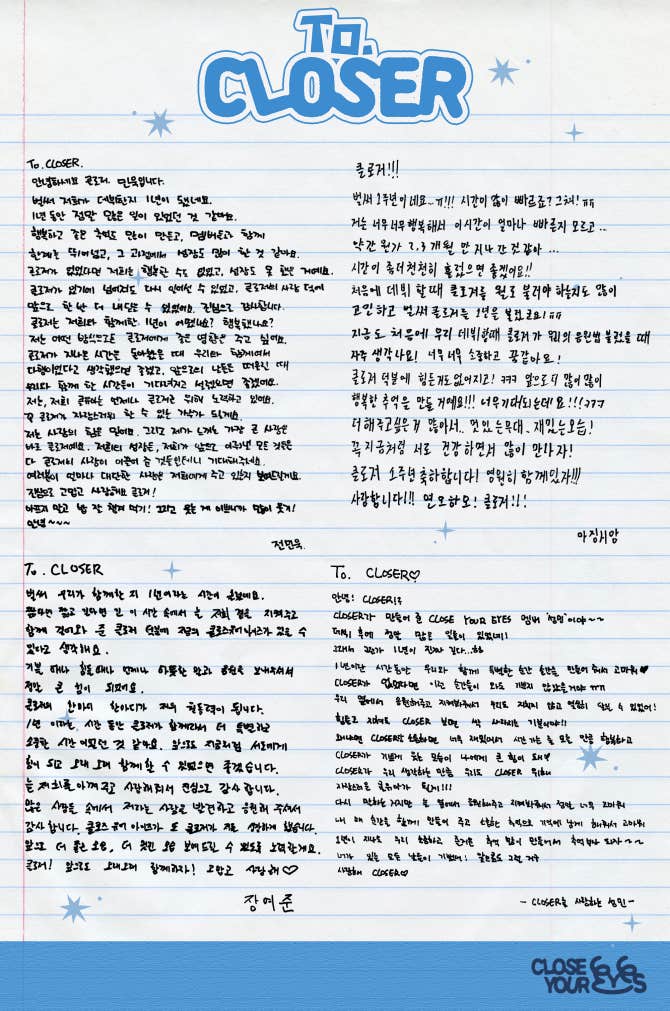 TO.
CLOSER
To. CLOSER.
안녕하세요 클로저. 민욱입니다.
벌써 저희가 데뷔한지 1년이 됐네요.
1년 동안 정말 많은 일이 있었던 것 같아요.
행복하고 좋은 추억도 많이 만들고, 멤버들과 함께
한계를 뛰어넘고, 그 과정에서 성장도 많이 한 것 같아요.
클로저가 없었다면 저희는 행복할 수도 없었고, 성장도 못 한 거예요.
클로저가 있기에 넘어져도 다시 일어설 수 있었고, 클로저의 사랑 덕에
앞으로 한 발 더 내딛을 수 있었어요. 진심으로 감사합니다.
클로저는 저희와 함께한 1년이 어땠나요? 행복했나요?
저는 어떤 방식으로든 클로저에게 좋은 영향을 주고 싶어요.
클로저가 지나온 시간을 돌아봤을 때 우리와 함께여서
다행이었다고 생각했으면 좋겠고, 앞으로의 나날을 떠올릴 때
우리와 함께 할 시간들이 기대되고 설렜으면 좋겠어요.
저는, 저희 클유아는 언제나 클로저를 위해 노력하고 있어요.
꼭 클로저가 자랑스러워 할 수 있는 가수가 되겠습니다.
저는 사랑의 힘을 믿어요. 그리고 제가 느끼는 가장 큰 사랑은
바로 클로저예요. 저희의 성장은, 저희가 앞으로 이뤄낼 모든 것들은
다 클로저의 사랑이 이끌어 줄 것들일테니 기대해주세요.
여러분이 얼마나 대단한 사랑을 저희에게 주고 있는지 보여드릴게요.
진심으로 고맙고 사랑해요 클로저!
아프지 말고 밥 잘 챙겨 먹기! 그리고 웃는 게 이쁘니까 많이 웃기!
안녕~~~
전민욱.
클로저!!!
벌써 1주년이네요..ㅠ!!! 시간이 많이 빠르죠? 그쵸! ㅠㅠ
저는 너무너무 행복해서 이 시간이 얼마나 빠른지 모르고..
약간 뭔가 2,3개월만 지나간 것 같아...
시간이 좀 더 천천히 흘렀으면 좋겠어요!!
처음에 데뷔 할 때 클로저를 뭘로 불러야 하는지도 많이
고민하고 벌써 클로저를 1년을 불렀고요! ㅠㅠ
지금도 처음에 우리 데뷔할때 클로저가 우리의 응원법 불렀을 때
자주 생각나요! 너무너무 소중하고 꿈같아요!
클로저 덕분에 힘든거도 없어지고! ㅋㅋㅋ 앞으로 더 많이 많이
행복한 추억을 만들 거예요!!! 너무 기대되는데요!!! ㅋㅋㅋ
더 해주고싶은거 많아서.. 멋있는 무대. 재밌는모습!
꼭 지금처럼 서로 건강하면서 많이 만나자!
클로저 1주년 축하합니다! 영원히 함께 있자!!!
사랑합니다!! 면오하오! 클로저!!
마징시앙
To. CLOSER
벌써 우리가 함께한 지 1년이라는 시간이 흘렀네요.
짧다면 짧고 길다면 긴 이 시간 속에서 늘 저희 곁을 지켜주고
함께 걸어와 준 클로저 덕분에 지금의 클로즈유어아이즈가 있을 수
있다고 생각해요.
기쁠 때나 힘들 때나 언제나 따뜻한 말과 응원을 보내주셔서
정말 큰 힘이 되었어요.
클로저의 한마디 한마디가 저희 원동력이 됩니다.
1년 이라는 시간 동안 클로저가 함께라서 더 특별하고
소중한 시간이었던 것 같아요. 앞으로도 지금처럼 서로에게
힘이 되고 오래 오래 함께 할 수 있었으면 좋겠습니다.
늘 저희를 아껴주고 사랑해줘서 진심으로 감사합니다.
많은 사람들 속에서 저라는 사람을 발견하고 응원해 주셔서
감사합니다. 클로즈 유어 아이즈가 또 클로저가 저는 생각하게 됐습니다.
앞으로 더 좋은 모습, 더 멋진 모습 보여드릴 수 있도록 노력할게요.
클로저! 앞으로도 오래오래 함께하자! 고맙고 사랑해 ♡
장여준
To. CLOSER♡
안녕! CLOSER들
CLOSER가 만들어 준 CLOSE YOUR EYES 멤버 '성민'이야~~
데뷔 후에 정말 많은 일들이 있었네!!
그래서 그런가 1년이 진짜 길다...ㅎㅎ
1년이란 시간 동안 우리와 함께 특별한 순간 순간을 만들어 줘서 고마워♥
CLOSER가 없었다면 이런 순간들이 와도 기쁘지 않았을거야 ㅠㅠ
우리 옆에서 응원해주고 지켜봐줘서 우리도 지치지 않고 열심히 달릴 수 있었어!
힘들고 지쳐도 CLOSER 보면 싹 사라지는 기분이야!!
왜냐하면 CLOSER랑 소통하면 너무 재밌어서 시간 가는 줄 모를 만큼 행복하고
CLOSER가 기쁘게 웃는 모습이 나에게 큰 힘이 돼♥
CLOSER가 우리 생각하는 만큼 우리도 CLOSER 위해
자랑스러운 클유아가 될게!!!
다시 말하는 거지만 늘 옆에서 응원해주고 지켜봐줘서 정말 너무 고마워
내 매 순간을 함께 만들어 주고 소중한 추억으로 기억에 남게 해줘서 고마워
1년이 지나도 우리 소중하고 즐거운 추억 많이 만들어서 추억부자 되자~~
너가 있는 모든 날들이 기뻤어! 앞으로도 그럴 거구
사랑해 CLOSER♡
- CLOSER를 사랑하는 성민 -
CLOSE
YOUR EYES